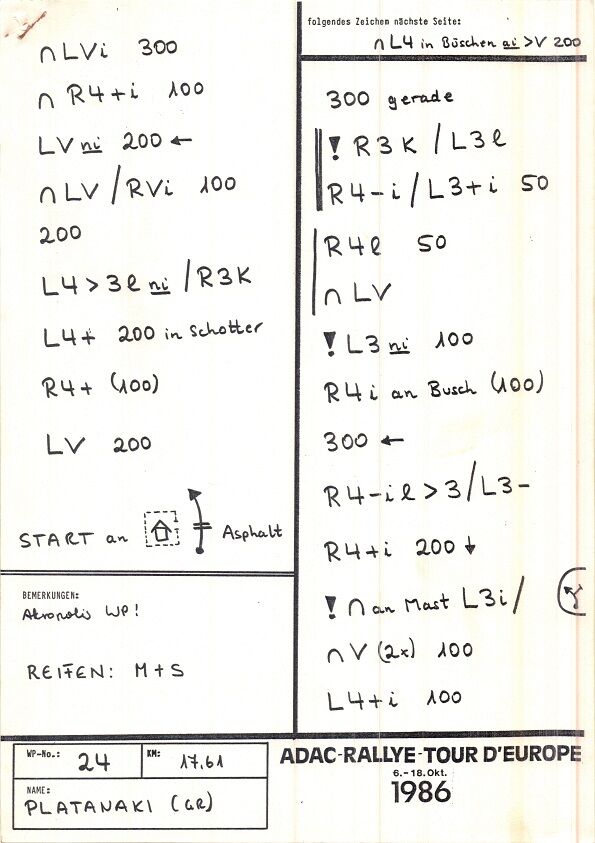 ∩ LVi 300
∩ R4+i 100
LV ni 200 ←
∩ LV / RVi 100
200
L4 > 3l ni / R3K
L4+ 200 in Schotter
R4+ (100)
LV 200
START an Asphalt
BEMERKUNGEN:
Akropolis WP!
REIFEN: M+S
folgendes Zeichen nächste Seite:
∩ L4 in Büschen ai >V 200
300 gerade
! R3K / L3l
R4-i / L3+i 50
R4l 50
∩ LV
! L3 ni 100
R4i an Busch (100)
300 ←
R4-il > 3 / L3-
R4+i 200 ↓
! ∩ an Mast L3i /
∩ V (2x) 100
L4+i 100
WP-No.: 24 KM: 17,61
NAME:
PLATANAKI (GR)
ADAC-RALLYE-TOUR D'EUROPE
6.-18.Okt.
1986